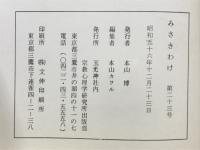 みさきわけ 第二十三号
昭和五十六年十二月二十三日
発行者 本山 博
編集者 本山カヲル
発行所 玉光神社内
宗教心理学研究所出版部
東京都三鷹市井の頭四の十一の七
印刷所 ㈱文伸印刷所
東京都三鷹市下連雀四―二―三八